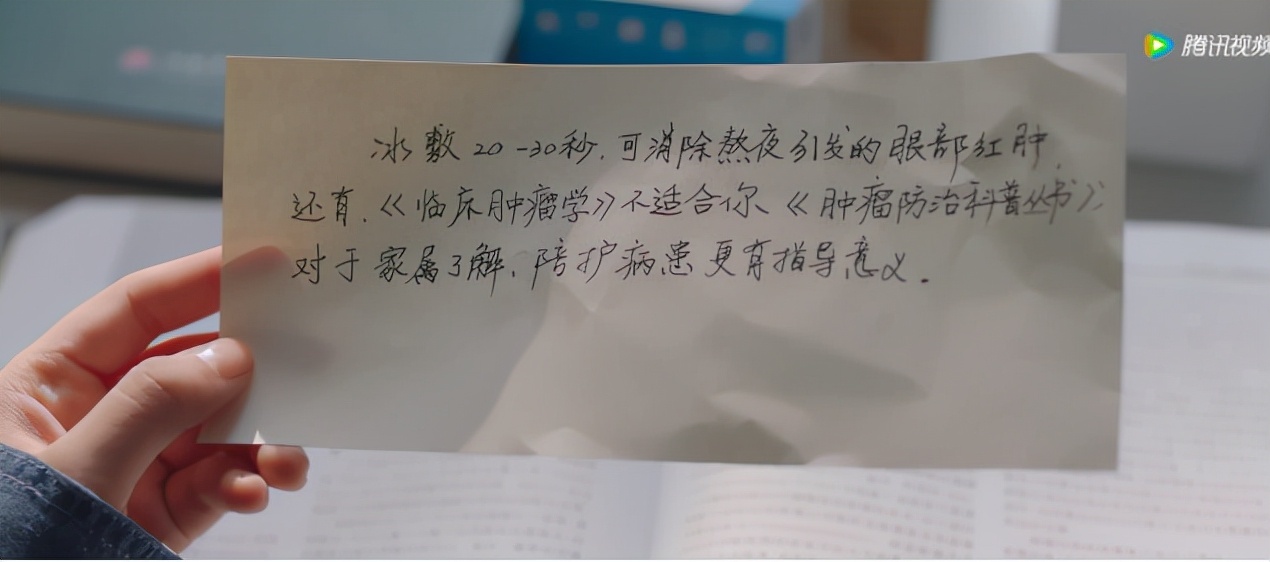 腾讯视频
冰敷20-30秒,可消除熬夜引发的眼部红肿,
还有,《临床肿瘤学》不适合你、《肿瘤防治科普丛书》
对于家属了解、陪护病患更有指导意义.